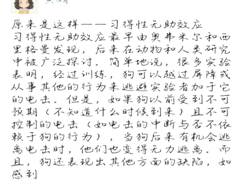 原来是这样——习得性无助效应
习得性无助效应最早由奥弗米尔和西
里格曼发现，后来在动物和人类研究
中被广泛探讨。简单地说，很多实验
表明，经过训练，狗可以越过屏障或
从事其他的行为来逃避实验者加于它
的电击。但是，如果狗以前受到不可
预期（不知道什么时候到来）且不可
控制的电击（如电击的中断与否不依
赖于狗的行为），当狗后来有机会逃
离电击时，他们也变得无力逃离。而
且，狗还表现出其他方面的缺陷，如
感到